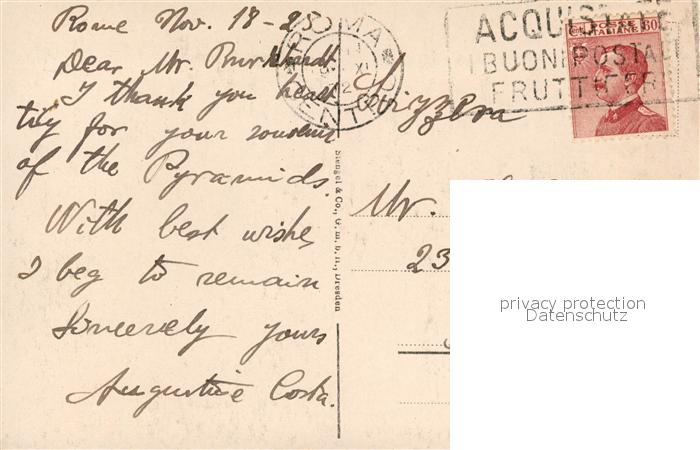 Rome Nov. 18-25
Dear Mr. Burkhardt
I thank you heart
tily for your
of the Pyramids.
With best wishes
I beg to remain
Sincerely yours
Augustine Costa.
ROMA
CENTRO
ACQUIST
BUONI POSTALI
FRUTTIFER
POSTE
ITALIANE
30
Svizzera
Mr.
23
Stengel & Co., G. m. b. H., Dresden
privacy protection
Datenschutz